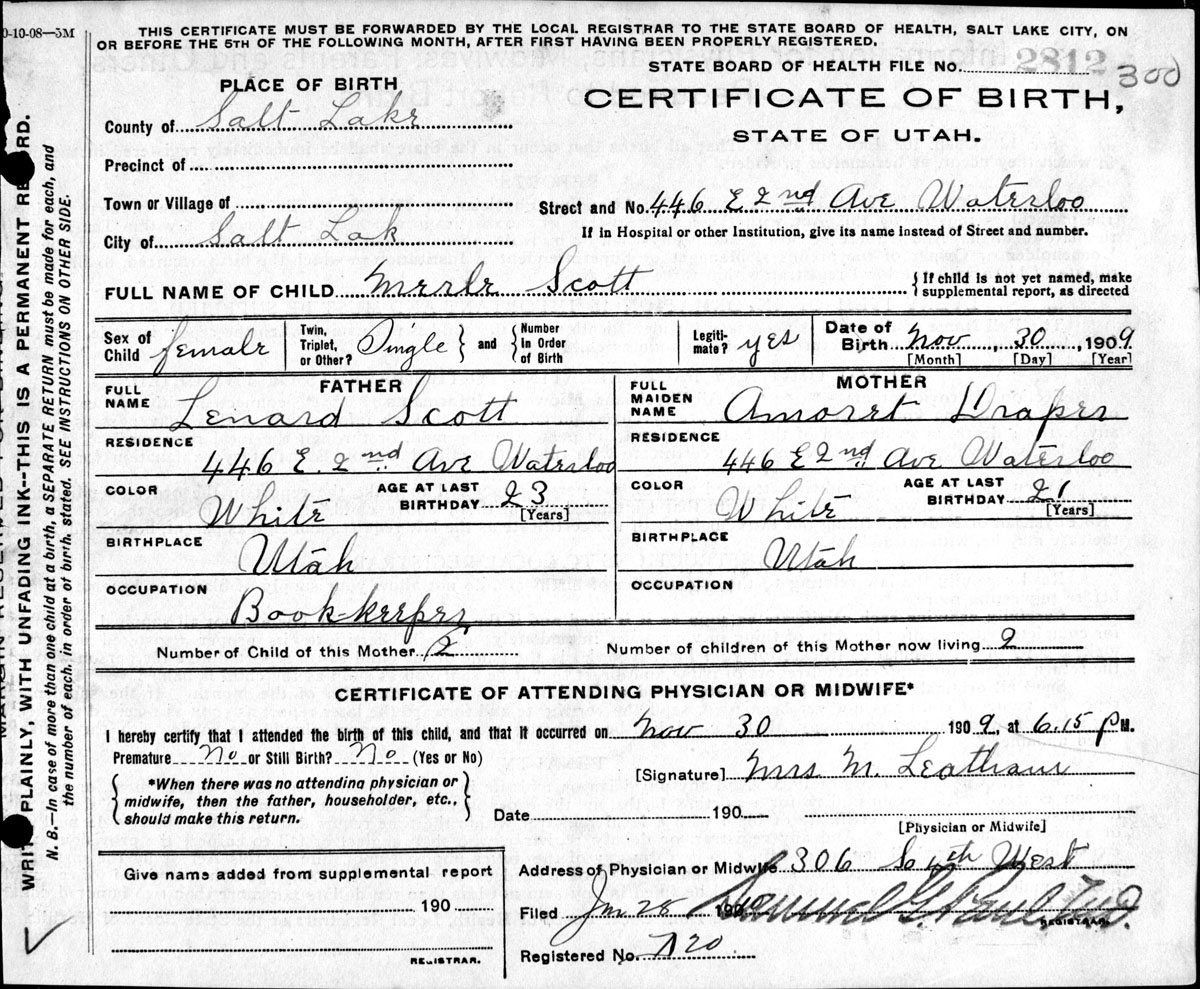 0-10-08—5M
THIS CERTIFICATE MUST BE FORWARDED BY THE LOCAL REGISTRAR TO THE STATE BOARD OF HEALTH, SALT LAKE CITY, ON
OR BEFORE THE 5TH OF THE FOLLOWING MONTH, AFTER FIRST HAVING BEEN PROPERLY REGISTERED.
STATE BOARD OF HEALTH FILE NO. 2812 300
PLACE OF BIRTH
CERTIFICATE OF BIRTH,
STATE OF UTAH.
County of Salt Lake
Precinct of
Town or Village of
Street and No. 446 E 2nd Ave Waterloo
City of Salt Lak
If in Hospital or other Institution, give its name instead of Street and number.
FULL NAME OF CHILD Merle Scott
{If child is not yet named, make
supplemental report, as directed
Sex of Child female
Twin, Triplet, or Other? Single } and { Number in Order of Birth
Legiti-mate? yes
Date of Birth Nov, 30, 1909
[Month] [Day] [Year]
FATHER
FULL NAME Lenard Scott
RESIDENCE
446 E. 2nd Ave Waterloo
COLOR White
AGE AT LAST BIRTHDAY 23
[Years]
BIRTHPLACE
Utah
OCCUPATION
Book-keeper
MOTHER
FULL MAIDEN NAME Amoret Draper
RESIDENCE
446 E 2nd Ave Waterloo
COLOR White
AGE AT LAST BIRTHDAY 21
[Years]
BIRTHPLACE
Utah
OCCUPATION
Number of Child of this Mother 2
Number of children of this Mother now living 2
CERTIFICATE OF ATTENDING PHYSICIAN OR MIDWIFE*
I hereby certify that I attended the birth of this child, and that it occurred on Nov 30 1909, at 6.15 P M.
Premature No or Still Birth? No (Yes or No)
*When there was no attending physician or
midwife, then the father, householder, etc.,
should make this return.
[Signature] Mrs M. Leatham
Date 190
[Physician or Midwife]
Give name added from supplemental report
190
REGISTRAR.
Address of Physician or Midwife 306 So 4th West
Filed Jan 28 19
REGISTRAR.
Registered No. 720
WRITE PLAINLY, WITH UNFADING INK—THIS IS A PERMANENT RECORD.
N. B.—In case of more than one child at a birth, a SEPARATE RETURN must be made for each, and
the number of each, in order of birth, stated. SEE INSTRUCTIONS ON OTHER SIDE.